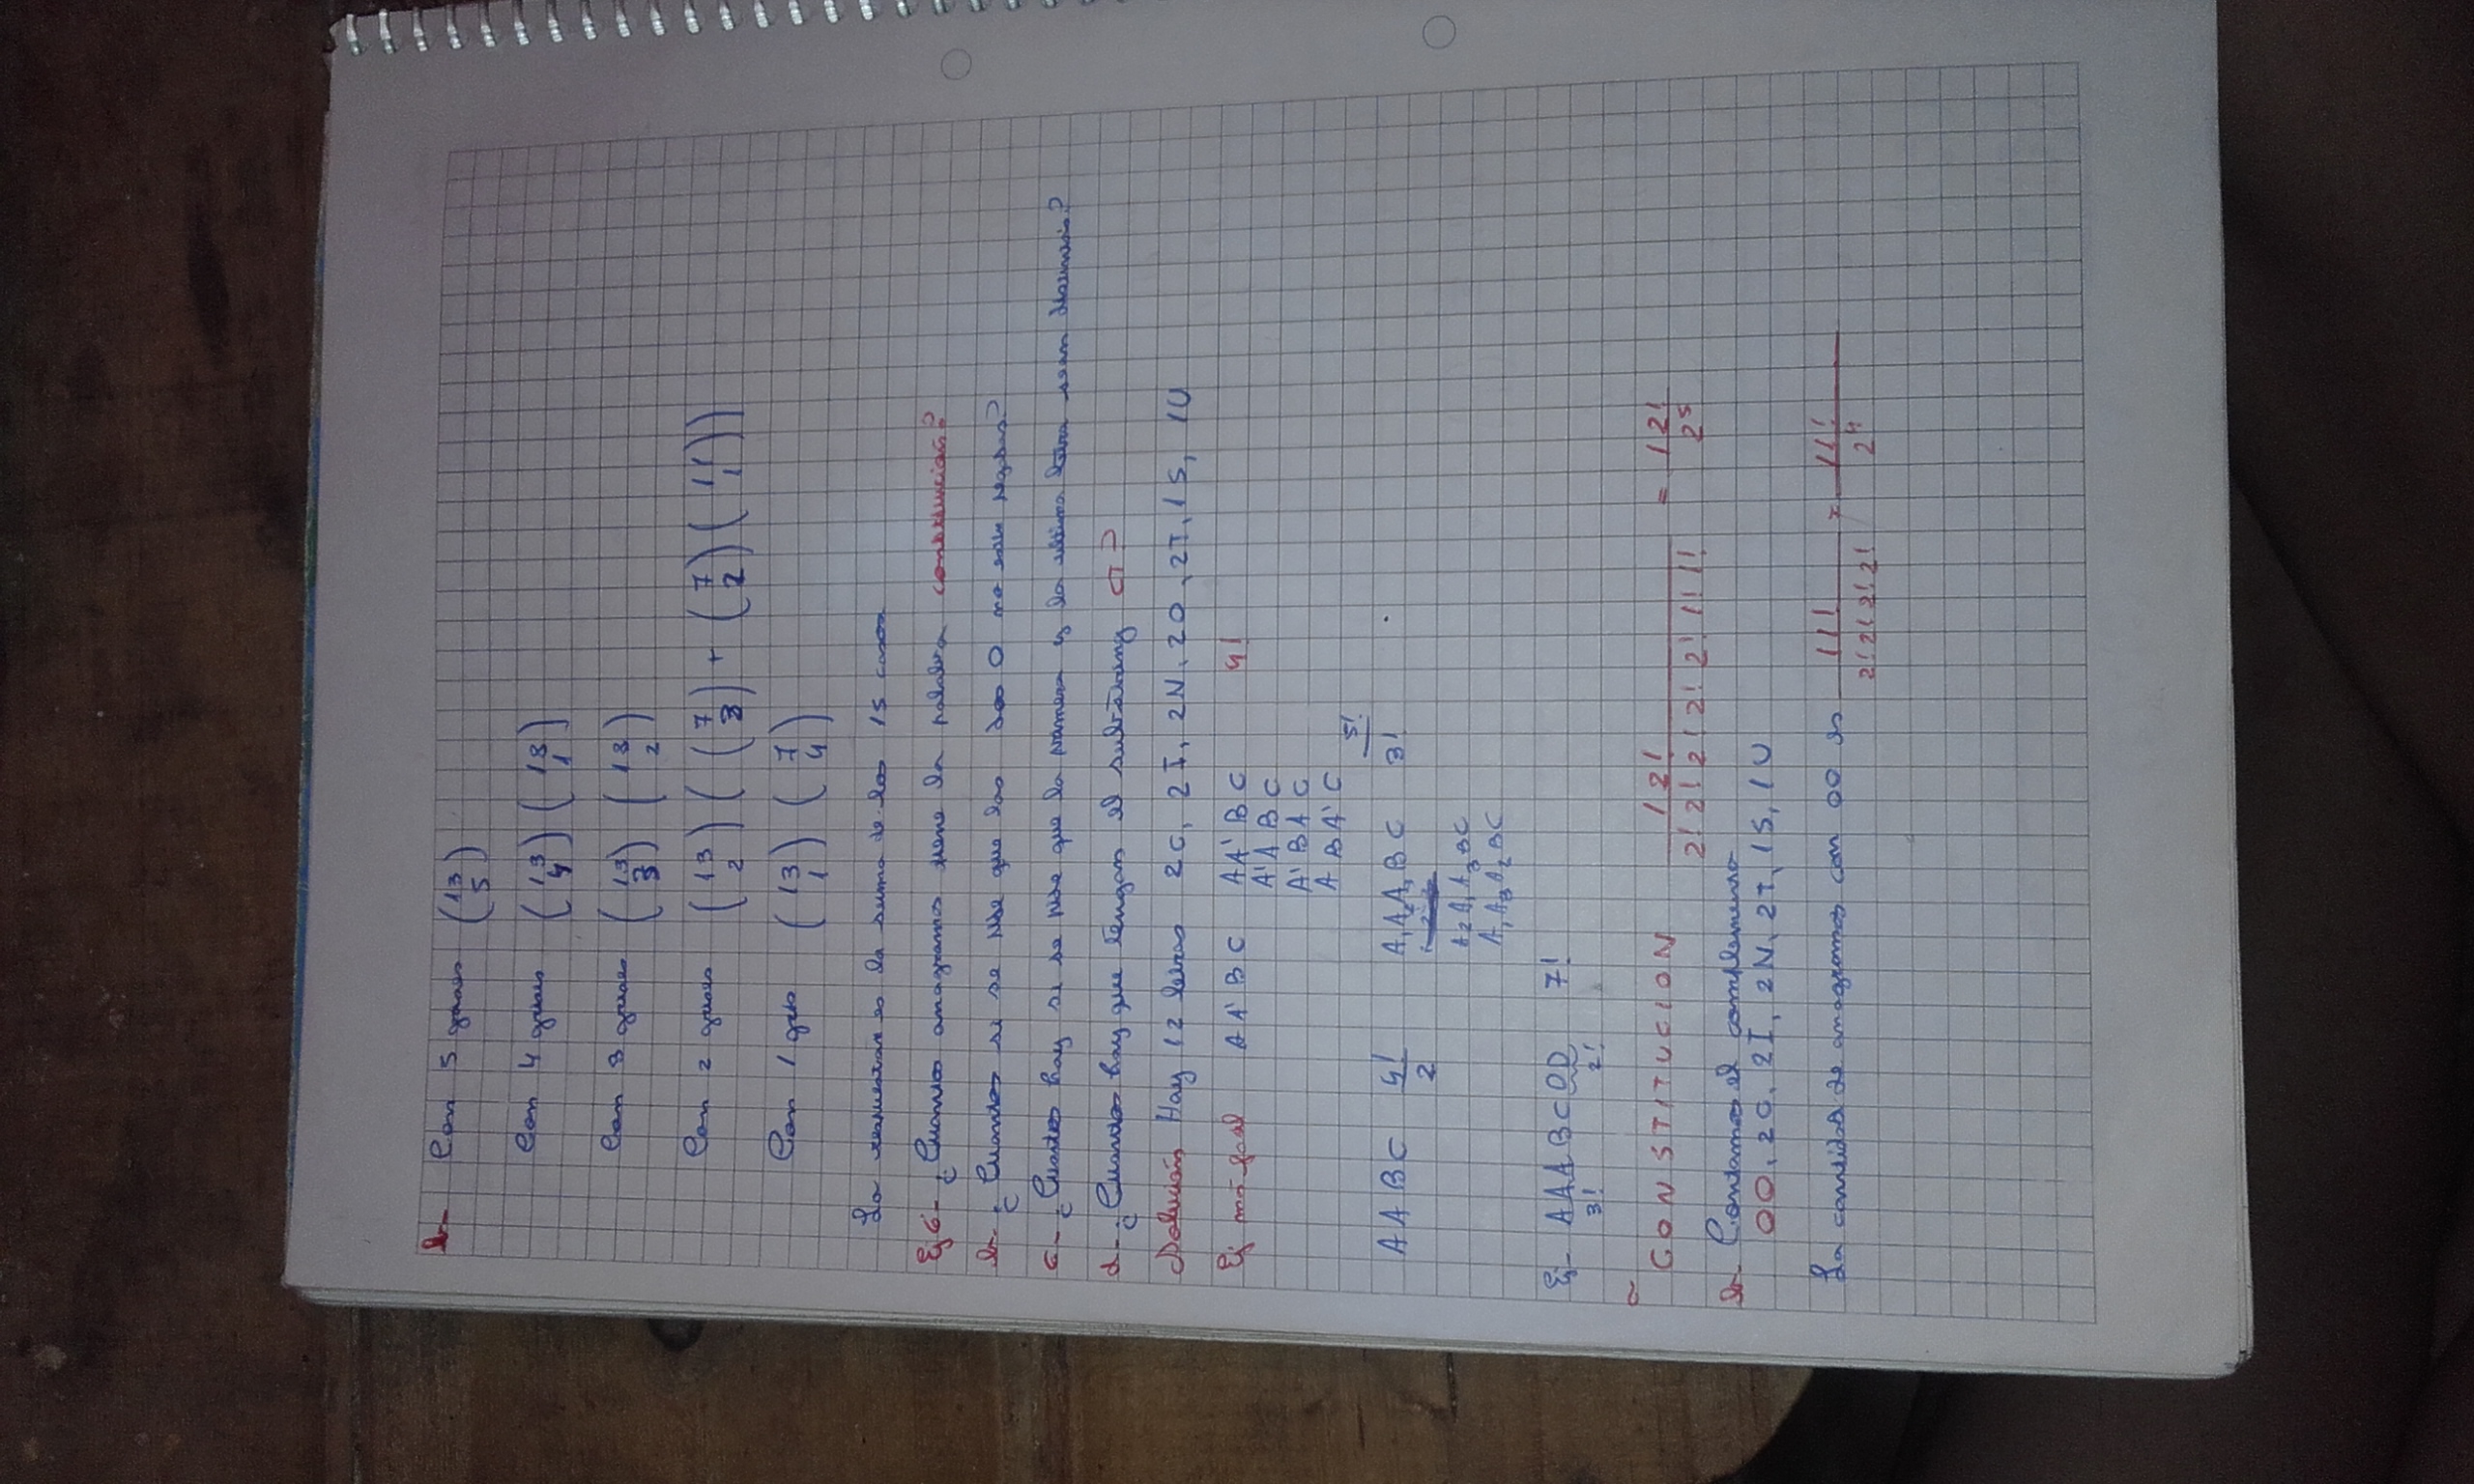 b- Con 5 grises (13 5)
Con 4 grises (13 4) (18 1)
Con 3 grises (13 3) (18 2)
Con 2 grises (13 2) ( (7 3) + (7 2) (11 1) )
Con 1 gris (13 1) (7 4)
La es la suma de los 15 casos
Ej 6- ¿Cuantos anagramas tiene la palabra constitucion?
b- ¿Cuantos si se pide que las dos O no esten pegadas?
c- ¿Cuantos hay si se pide que la primera y la ultima letra sean distintas?
d- ¿Cuantos hay que tengan el substring CT?
Solucion Hay 12 letras 2C, 2I, 2N, 2O, 2T, 1S, 1U
Ej mas facil A A' B C A A' B C 4!
A' A B C
A' B A C
A B A' C
A A B C 4!/2 A₁A₂A₃ B C 5!/3!
A₂A₁A₃BC
A₁A₃A₂BC
Ej- AAABCDD 7!
3! 2!
a-
CONSTITUCION 12!/2! 2! 2! 2! 2! 1! 1! = 12!/2⁵
b- Contamos el complemento
OO, 2C, 2I, 2N, 2T, 1S, 1U
La cantidad de anagramas con OO es 11!/2! 2! 2! 2! = 11!/2⁴